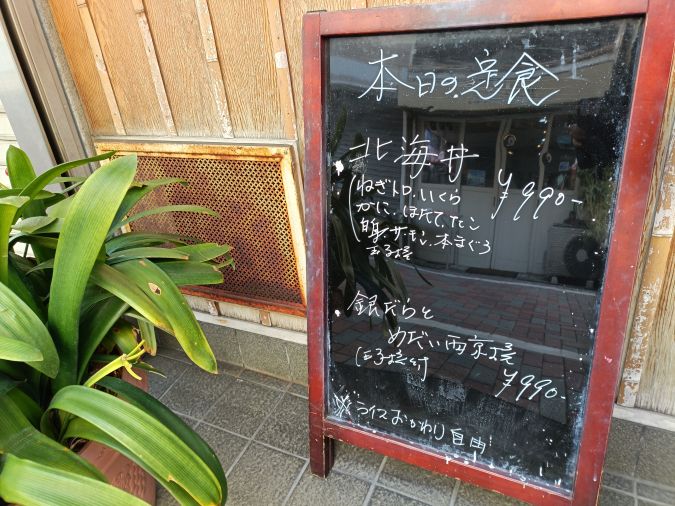 本日の定食
北海丼
¥990-
(ねぎトロ、いくら
かに、ほたて、たこ
サーモン、本まぐろ
玉子焼
銀だらと
めだい西京焼
(玉子焼付
¥990-
※ライスおかわり自由